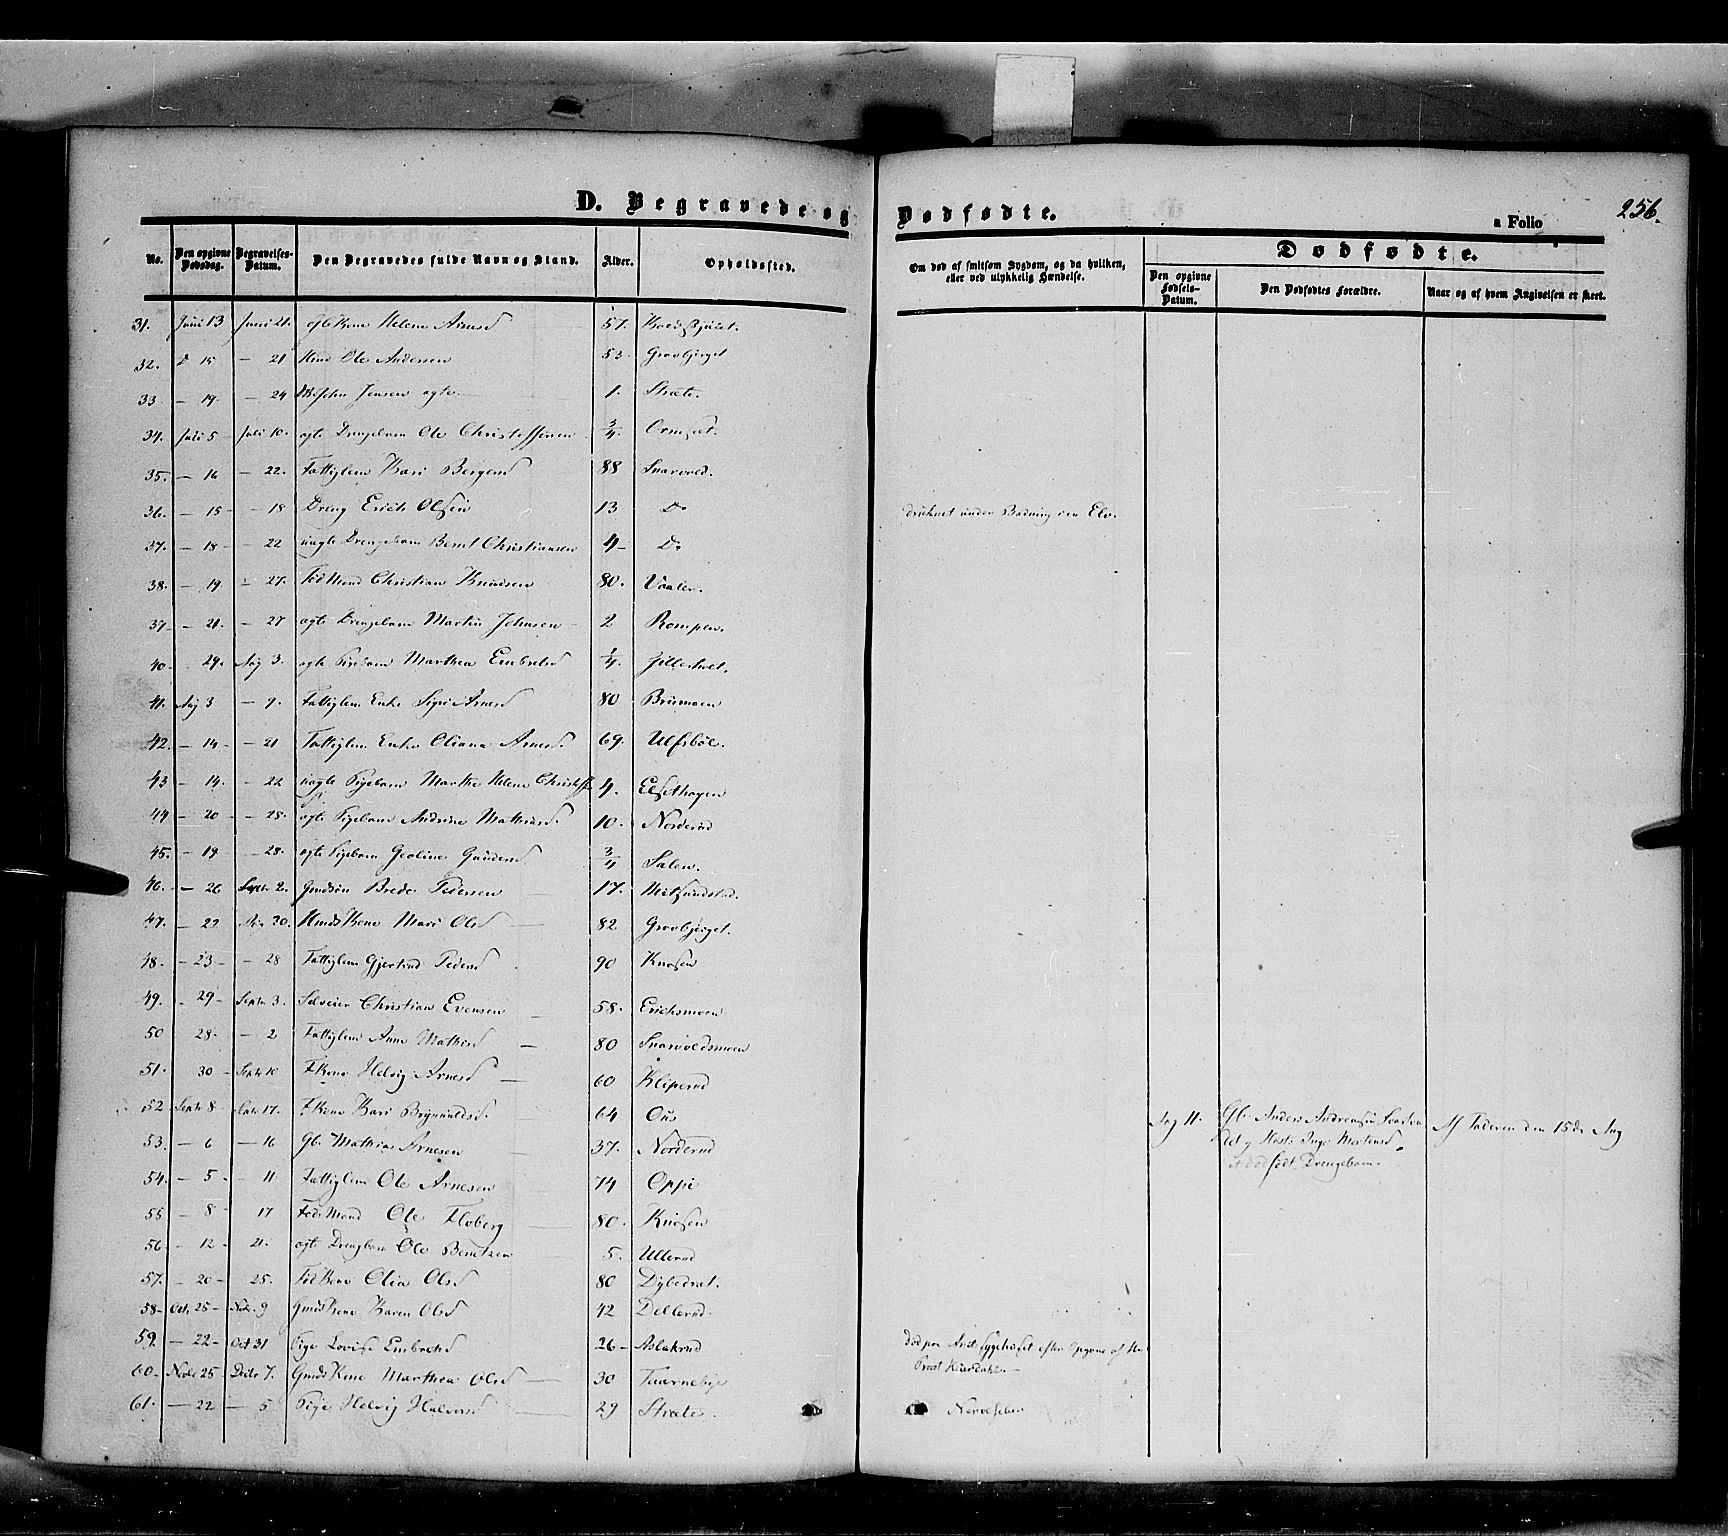 D. Begravede og Dødfødte.
a Folio 256.
No. Den opgivne Dødsdag. Begravelses-Datum. Den Begravedes fulde Navn og Stand. Alder. Opholdssted. Om død af smitsom Sygdom, og da hvilken, eller ved ulykkelig Hændelse.
Dødfødte.
Den opgivne Fødsels-Datum. Den Dødfødtes Forældre. Naar og af hvem Angivelsen er skeet.
31. Juni 13 Juni 21. Kone Helene Arnesd 57.
32. D 15 — 21 Ole Andersen 53. Gravbjerget
33 — 19. — 24 John Jensen ægte 1. Stræte.
34. Juli 5 Juli 10. ægte Drengebarn Ole Christoffersen 3/4.
35. — 16 — 22. Fattiglem Kari Bergersd 88 Snarvold.
36. — 15 — 18 Dreng Erich Olsen 13 Do druknet under Badning i en Elv.
37. — 18 — 22 uægte Drengebarn Bernt Christiansen 4 Do
38. — 19 — 27. Fød Mand Christian Knudsen 80. Vaaler.
39 — 21. — 27 ægte Drengebarn Martin Johnsen 2
40. 29. Aug 3. ægte Pigebarn Marthea Embretsd 1/4.
41. Aug 3 — 9. Fattiglem Enke Sigri Arnesd 80
42. — 14 — 21 Fattiglem Enke Oliana Arnesd. 69. Ulfsbøl.
43 — 14. — 22 uægte Pigebarn Marthe Helene Christoff 4. Elsethagen
44 — 20 — 25. ægte Pigebarn Andrine Mathiasd. 10. Norderud
45. — 19 — 28. ægte Pigebarn Gudersd 3/4 Salen.
46. — 26 Septr 2. Gmdsøn Brede Pedersen 17.
47. — 22 Aug 30. Kone Mari Olsd 82 Gravbjerget.
48. — 23 — 28 Fattiglem Gjertrud Pedersd 90
49. — 29 Septr 3. Christian Evensen 58. Erichsmoen
50 28. — 2 Fattiglem Anne Mathisd 80 Snarvoldsmoen
51. 30 Septr 10 Fkone Helvig Arnesd 60 Kliperud
52 Septr 8 Septr 17. Fkone Kari 64 Ous
Aug 11. Gb. Anders Andreasen og Hust: Inger Mortensd dødfødt Drengebarn. Af Faderen den 15de Aug
53. — 6 — 16 Gb. Mathias Arnesen 37. Norderud
54. — 5 — 11 Fattiglem Ole Arnesen 74 Oppi
55 — 8 17 Fød Mand Ole Floberg 80.
56 — 12 21. ægte Drengbarn Ole Berntsen 5. Ullerud
57. — 20 — 25. Fød Kone Olia Olsd 80
58 — Oct. 25 — Nov. 9 Gmds Kone Karen Olsd 42 Dellerud.
59. — 22 — Oct 31 Pige Lovise Embretsd 26 Aslakrud Død paa efter Opgave af Hr. Provst
60. Novbr 25 Decbr 7. Gmds Kone Marthea Olsd 30
61. — 22 — 5 Pige Helvig Halvorsd 29 Stræte. Nervefeber